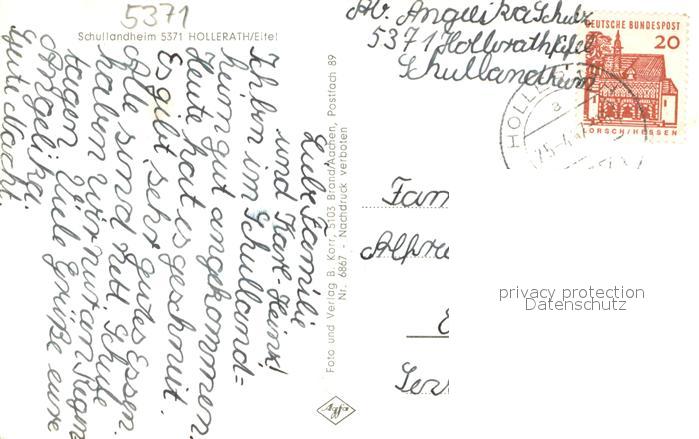 5371
Schullandheim 5371 HOLLERATH/Eifel
Ab. Angelika Schulz
5371 Hollerath/Eifel
Schullandheim
DEUTSCHE BUNDESPOST
20
LORSCH/HESSEN
HOLLE
25-4
Liebe Familie
und Karl-Heinz!
Ich bin im Schulland=
heim gut angekommen.
Heute hat es geschneit.
Es gibt sehr gutes Essen.
Alle sind nett Schule
haben wir nur an Regen
tagen. Viele Grüße eure
Angelika.
Gute Nacht.
Foto und Verlag B. Korr, 5103 Brand/Aachen, Postfach 89
Nr. 6867 - Nachdruck verboten
Fam
Alfre
Agfa
privacy protection
Datenschutz